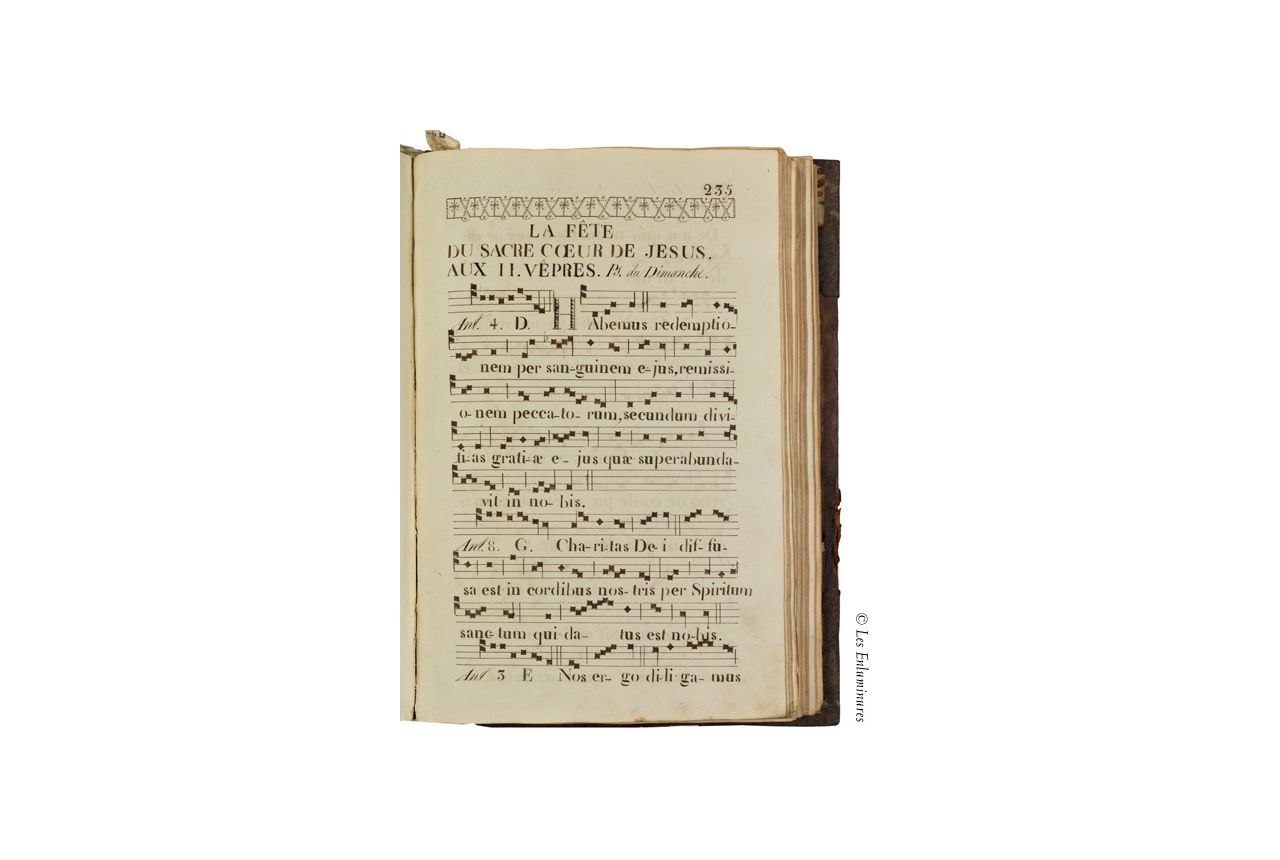 235
LA FÊTE
DU SACRE CŒUR DE JESUS.
AUX II. VÊPRES. Ps. du Dimanche.
Ant. 4. D. HAbemus redemptio-
nem per san-guinem e-jus, remissi-
o-nem pecca-to-rum, secundum divi-
ti-as grati-æ e-jus quæ superabunda-
vit in no-bis.
Ant. 8. G. Cha-ri-tas De-i dif-fu-
sa est in cordibus nos-tris per Spiritum
sanc-tum qui da-tus est no-bis.
Ant 3 E Nos er-go di-li-ga-mus
© Les Enluminures